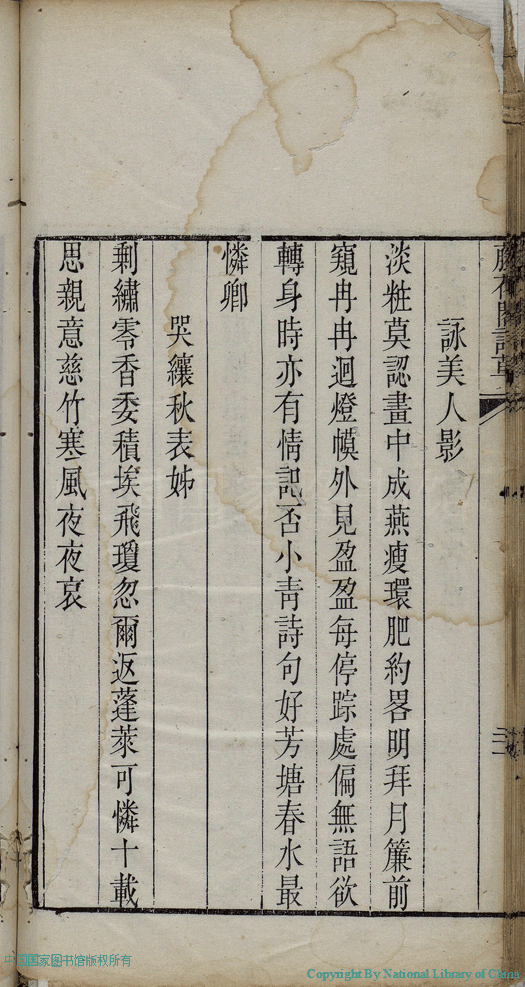 詠美人影
淡粧莫認畫中成燕瘦環肥約畧明拜月簾前
窺冉冉迴燈幙外見盈盈每停踪處偏無語欲
轉身時亦有情記否小青詩句好芳塘春水最
憐卿
哭纕秋表姊
剩繡零香委積埃飛瓊忽爾返蓬萊可憐十載
思親意慈竹寒風夜夜哀
中国国家图书馆版权所有
Copyright By National Library of China